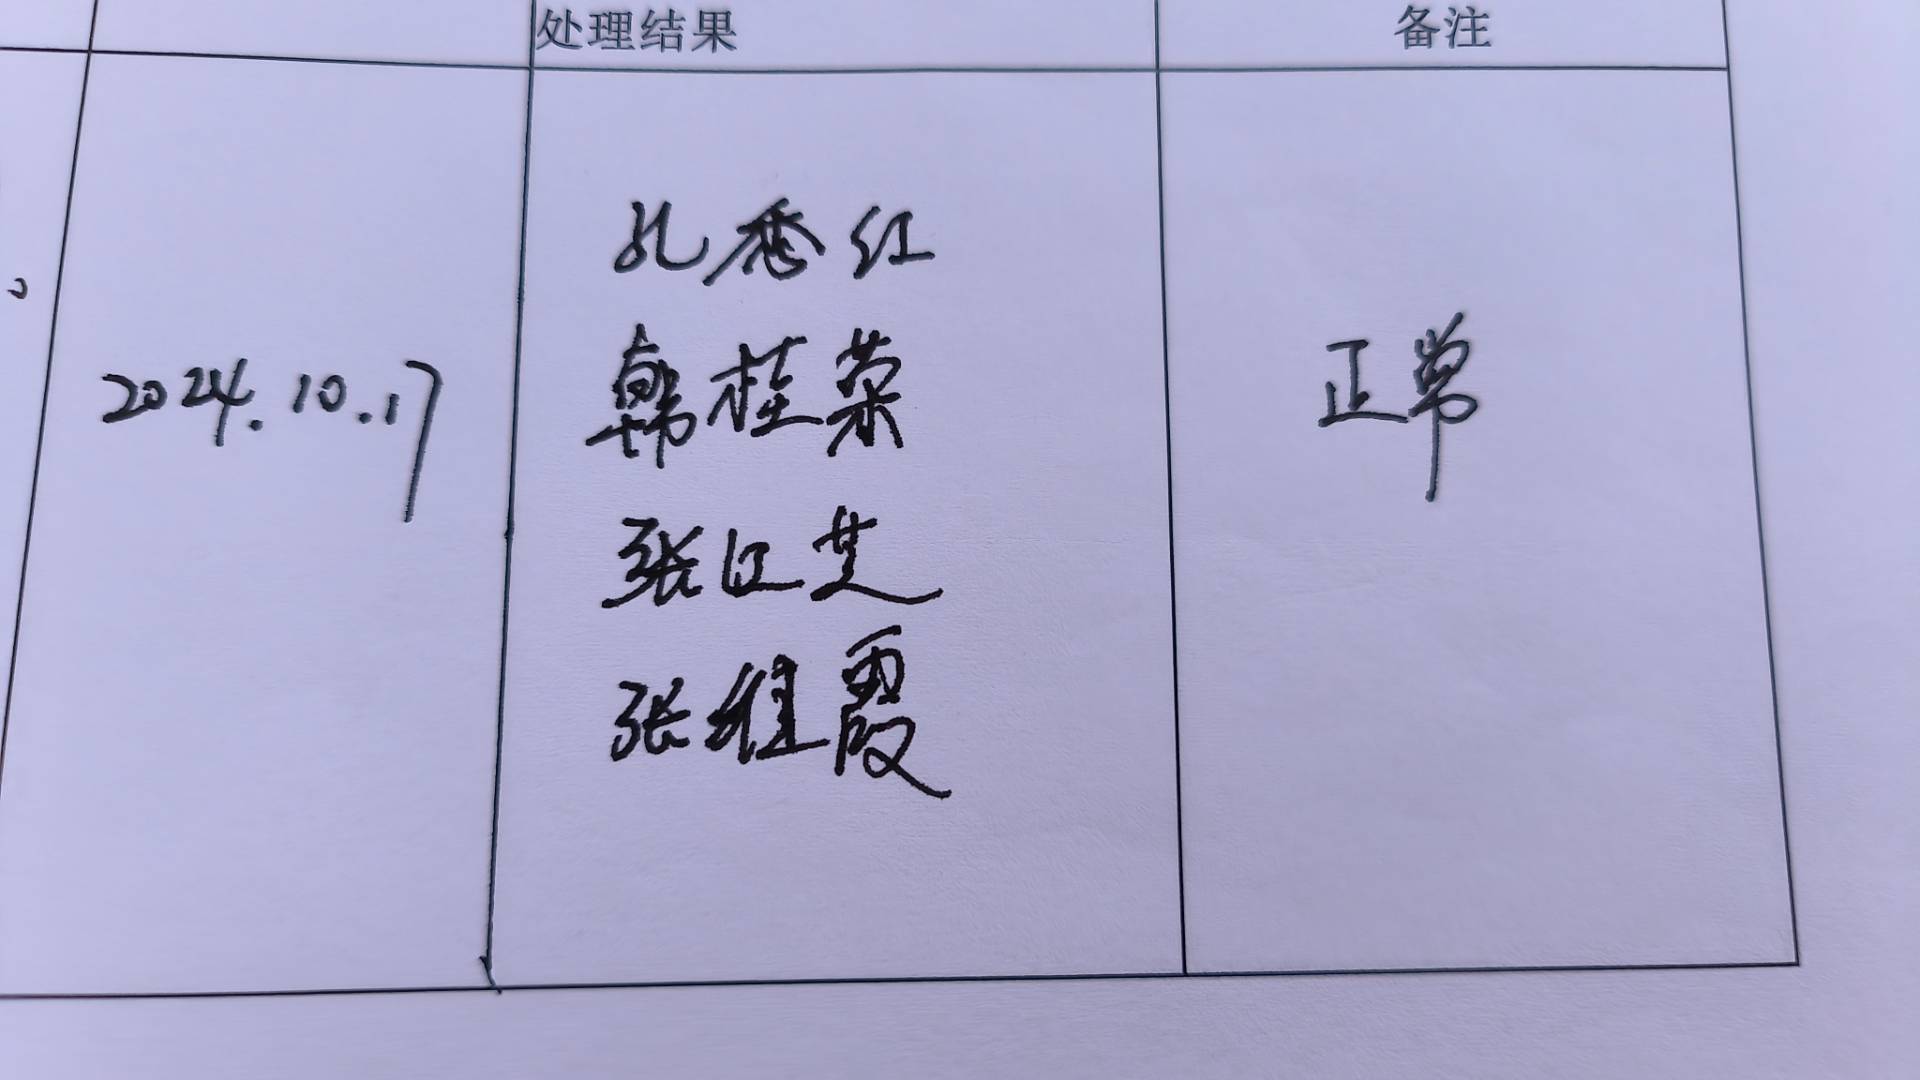 处理结果 备注
孔秀红
韩桂荣
2024.10.17 正常
张红芝
张桂霞